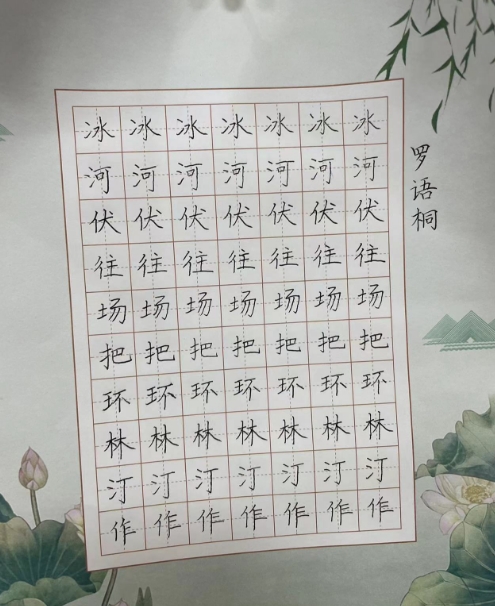 冰冰冰冰冰冰冰
河河河河河河河
伏伏伏伏伏伏伏
往往往往往往往
场场场场场场场
把把把把把把把
环环环环环环环
林林林林林林林
汀汀汀汀汀汀汀
作作作作作作作
罗语桐